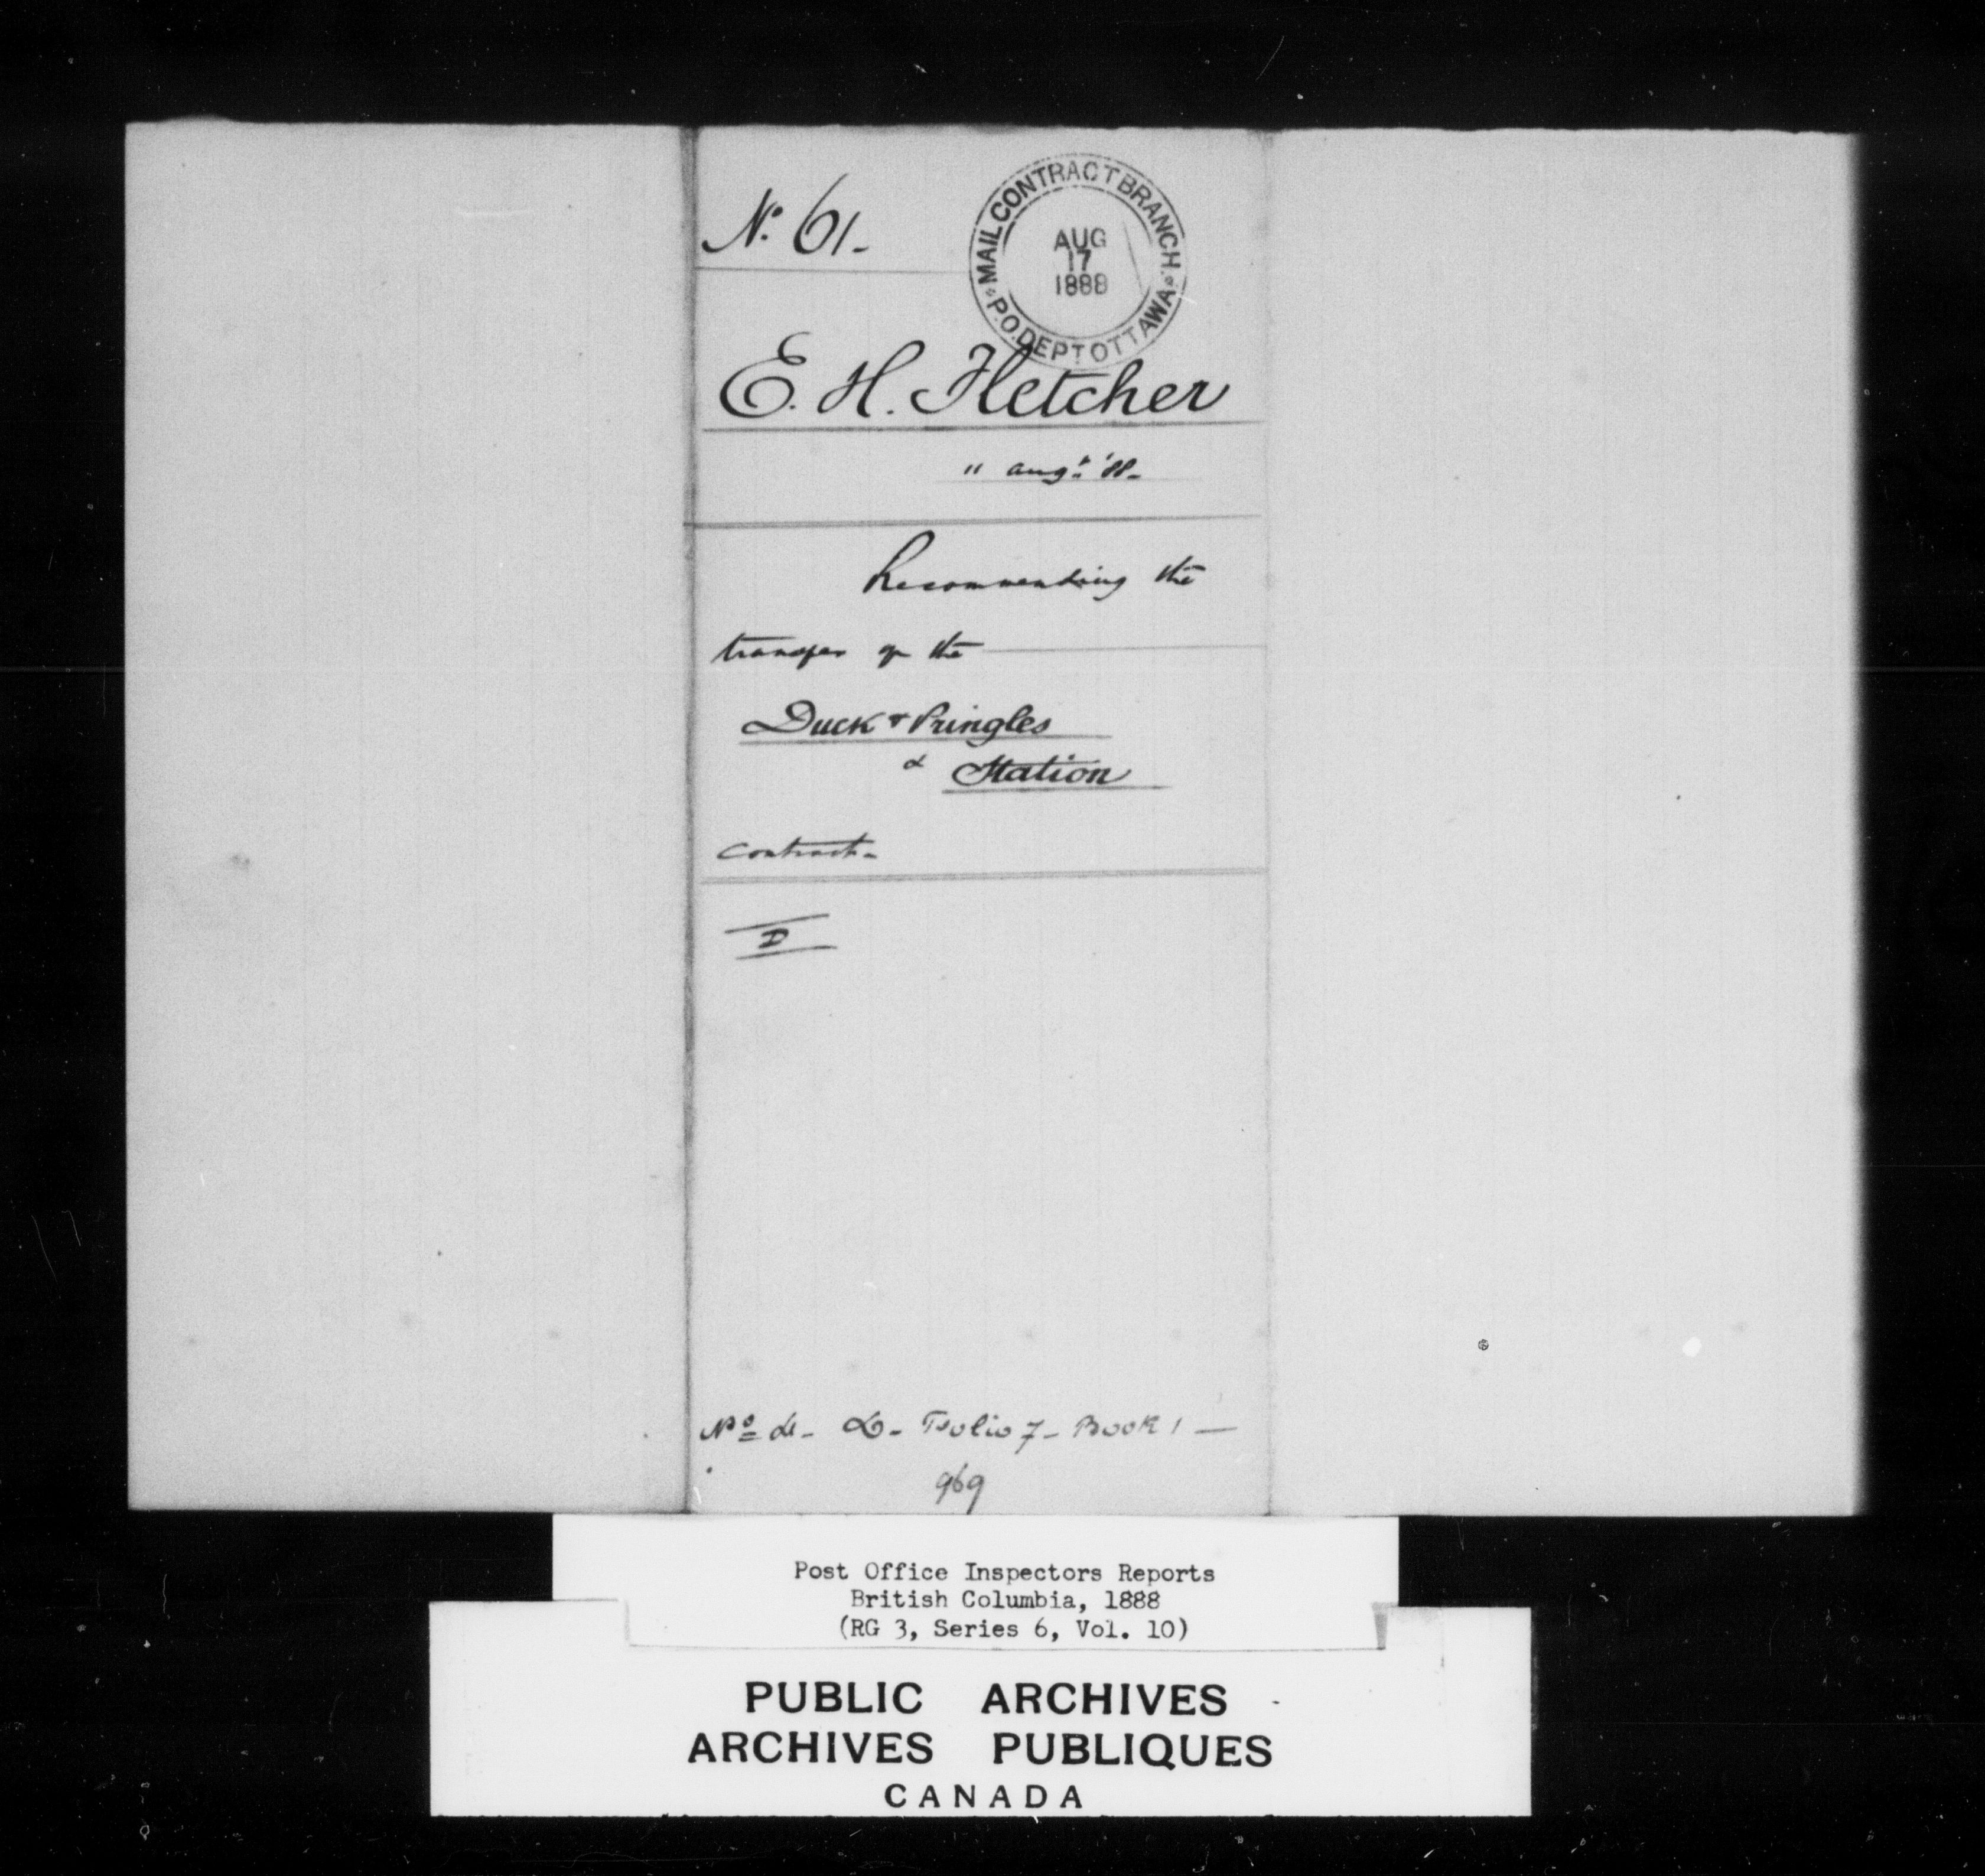 N.o 61-
MAIL CONTRACT BRANCH.
P.O. DEPT OTTAWA
AUG
17
1888
E. H. Fletcher
11 Augt. '88-
Recommending the
transfer of the
Duck & Pringles
& Station
contract-
D
No 4- D- Folio 7- Book 1 —
969
Post Office Inspectors Reports
British Columbia, 1888
(RG 3, Series 6, Vol. 10)
PUBLIC ARCHIVES
ARCHIVES PUBLIQUES
CANADA